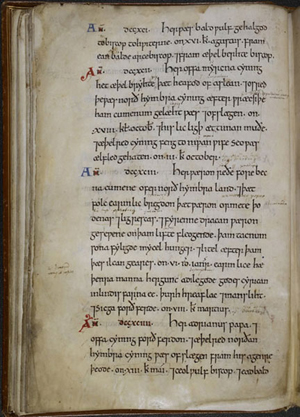 An̄. dccxci. Her wæs baldwulf gehalgod
to biscop to hwiterne. on .xvi. k. agustus. fram
eanbalde arcebiscop. ⁊ fram æþelberhte biscop.
An̄. dccxcii. Her offa myrcena cyning
het æþelbryhte þæt heafod of aslean. ⁊ osred
þe wæs norðhymbra cyning æfter wræcsiþe
ham cumenum gelæht wæs ⁊ ofslægen. on
xviii kł octob. ⁊ his lic ligð æt tinan muðe.
⁊ æþelred cyning feng to niwan wife seo wæs
ælfled gehaten. on .iii. k. october.
An̄. dccxciii. Her wæron reðe forebec
na cumene ofer norðhymbra land. ⁊ þæt
folc earmlic bregdon þæt wæron ormete þo
denas ⁊ ligrescas. ⁊ fyrenne dracan wæron
gesewene on þam lifte fleogende. þam tacnum
sona fyligde mycel hunger. ⁊ litel æfter þam
þæs ilcan geares. on .vi. id. ianr. earmlice hæ
þenra manna hergunc adilegode godes cyrican
in lindisfarna ee. þurh hreaflac ⁊ mansliht.
⁊ sicga forðferde. on .viii. k. martius.
An̄. dccxciiii. Her adrianus papa. ⁊
offa cyning forðferdon. ⁊ æþelred norðan
hymbra cyning wæs ofslægen fram his agenre
þeode. on .xiii. k. mai. ⁊ ceolwulf biscop. ⁊ eadbald